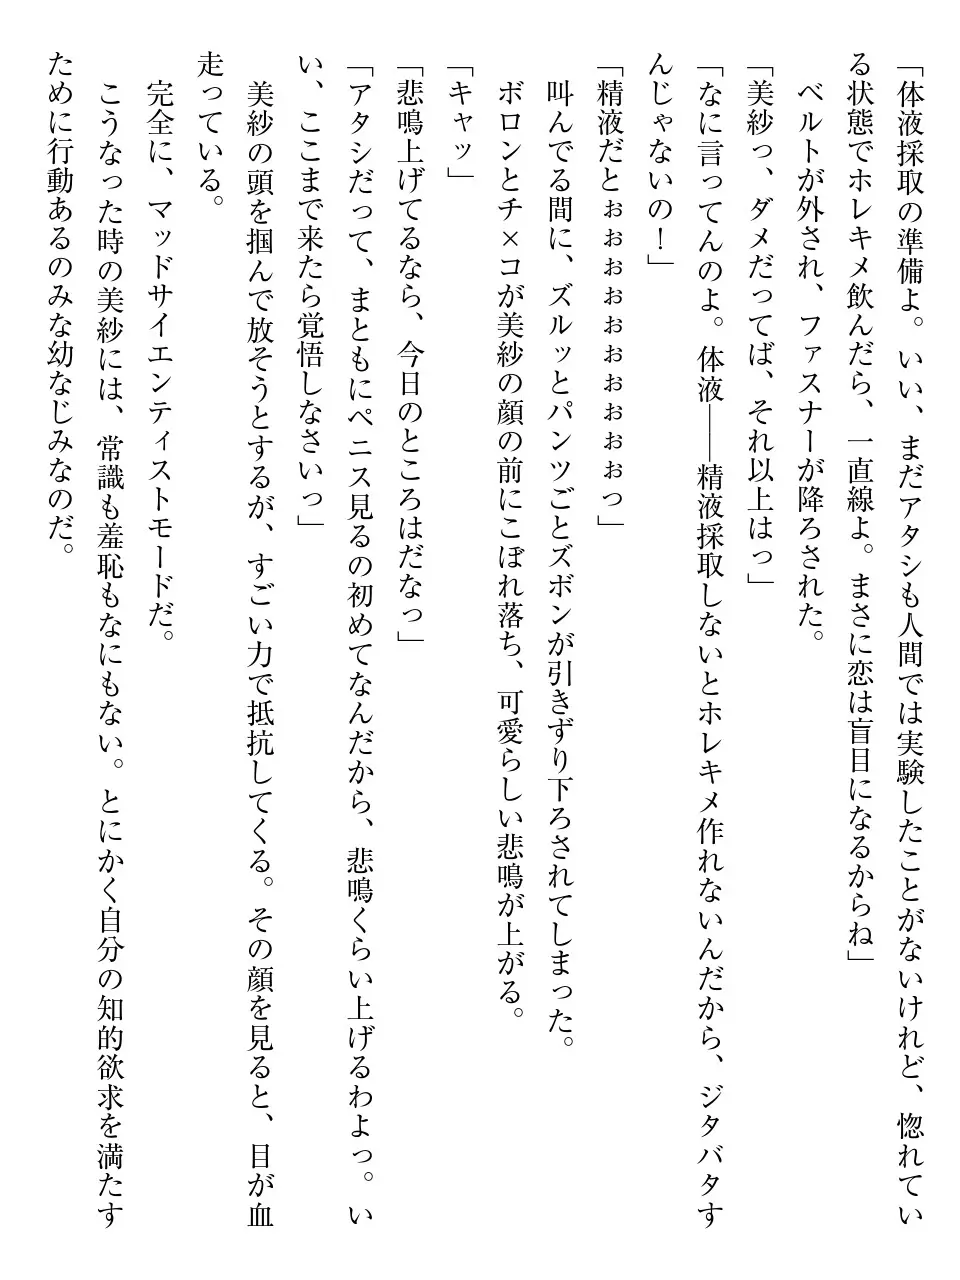 「体液採取の準備よ。いい、まだアタシも人間では実験したことがないけれど、惚れてい
る状態でホレキメ飲んだら、一直線よ。まさに恋は盲目になるからね」
　ベルトが外され、ファスナーが降ろされた。
「美紗っ、ダメだってば、それ以上はっ」
「なに言ってんのよ。体液――精液採取しないとホレキメ作れないんだから、ジタバタす
んじゃないの！」
「精液だとぉぉぉぉぉぉぉぉぉぉっ」
　叫んでる間に、ズルッとパンツごとズボンが引きずり下ろされてしまった。
　ボロンとチ×コが美紗の顔の前にこぼれ落ち、可愛らしい悲鳴が上がる。
「キャッ」
「悲鳴上げてるなら、今日のところはだなっ」
「アタシだって、まともにペニス見るの初めてなんだから、悲鳴くらい上げるわよっ。い
い、ここまで来たら覚悟しなさいっ」
　美紗の頭を掴んで放そうとするが、すごい力で抵抗してくる。その顔を見ると、目が血
走っている。
　完全に、マッドサイエンティストモードだ。
　こうなった時の美紗には、常識も羞恥もなにもない。とにかく自分の知的欲求を満たす
ために行動あるのみな幼なじみなのだ。